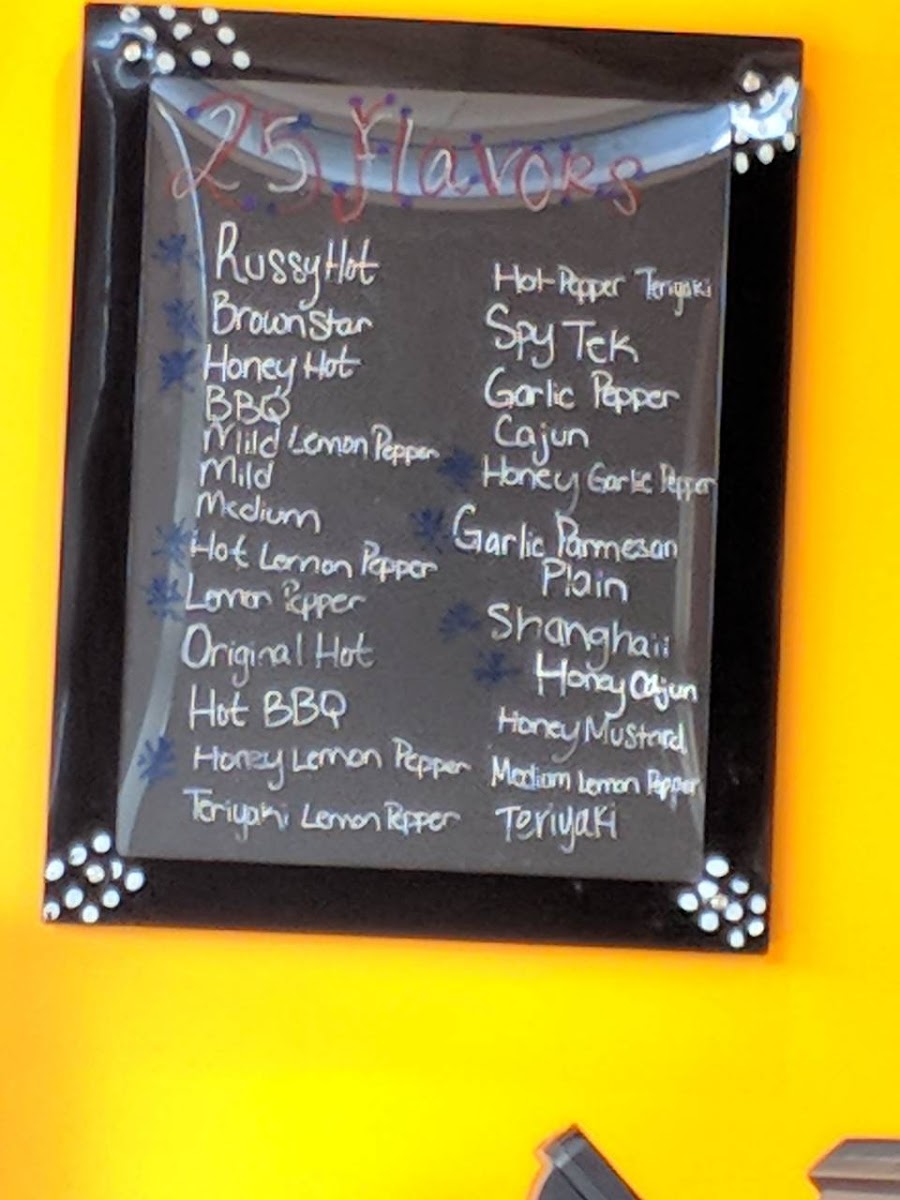 25 Flavors
RussyHot
BrownStar
Honey Hot
BBQ
Mild Lemon Pepper
Mild
Medium
Hot Lemon Pepper
Lemon Pepper
Original Hot
Hot BBQ
Honey Lemon Pepper
Teriyaki Lemon Pepper
Hot Pepper Teriyaki
Spy Tek
Garlic Pepper
Cajun
Honey Garlic Pepper
Garlic Parmesan
Plain
Shanghaii
Honey Cajun
Honey Mustard
Medium Lemon Pepper
Teriyaki